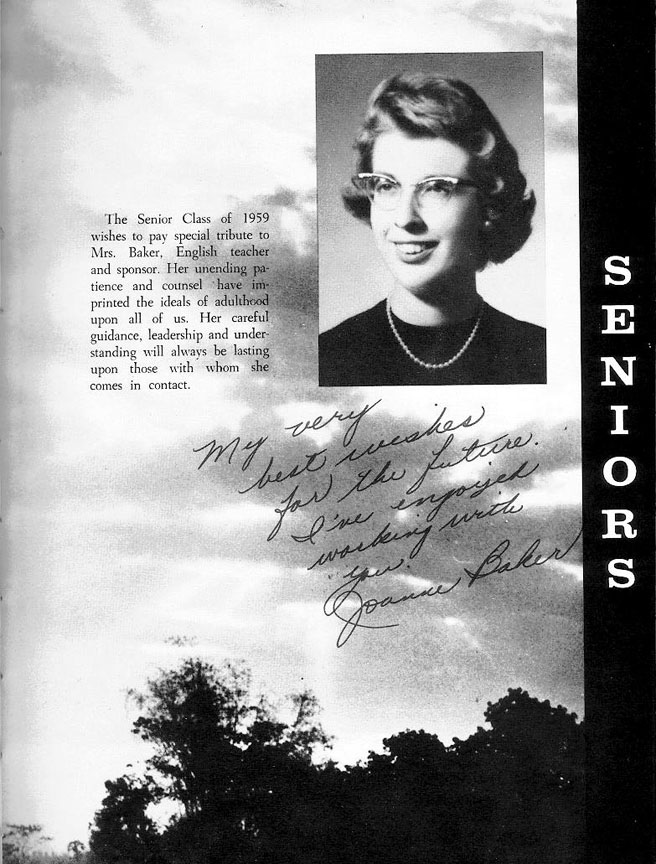 The Senior Class of 1959
wishes to pay special tribute to
Mrs. Baker, English teacher
and sponsor. Her unending pa-
tience and counsel have im-
printed the ideals of adulthood
upon all of us. Her careful
guidance, leadership and under-
standing will always be lasting
upon those with whom she
comes in contact.
My very
best wishes
for the future.
I've enjoyed
working with
you.
Joanne Baker
SENIORS